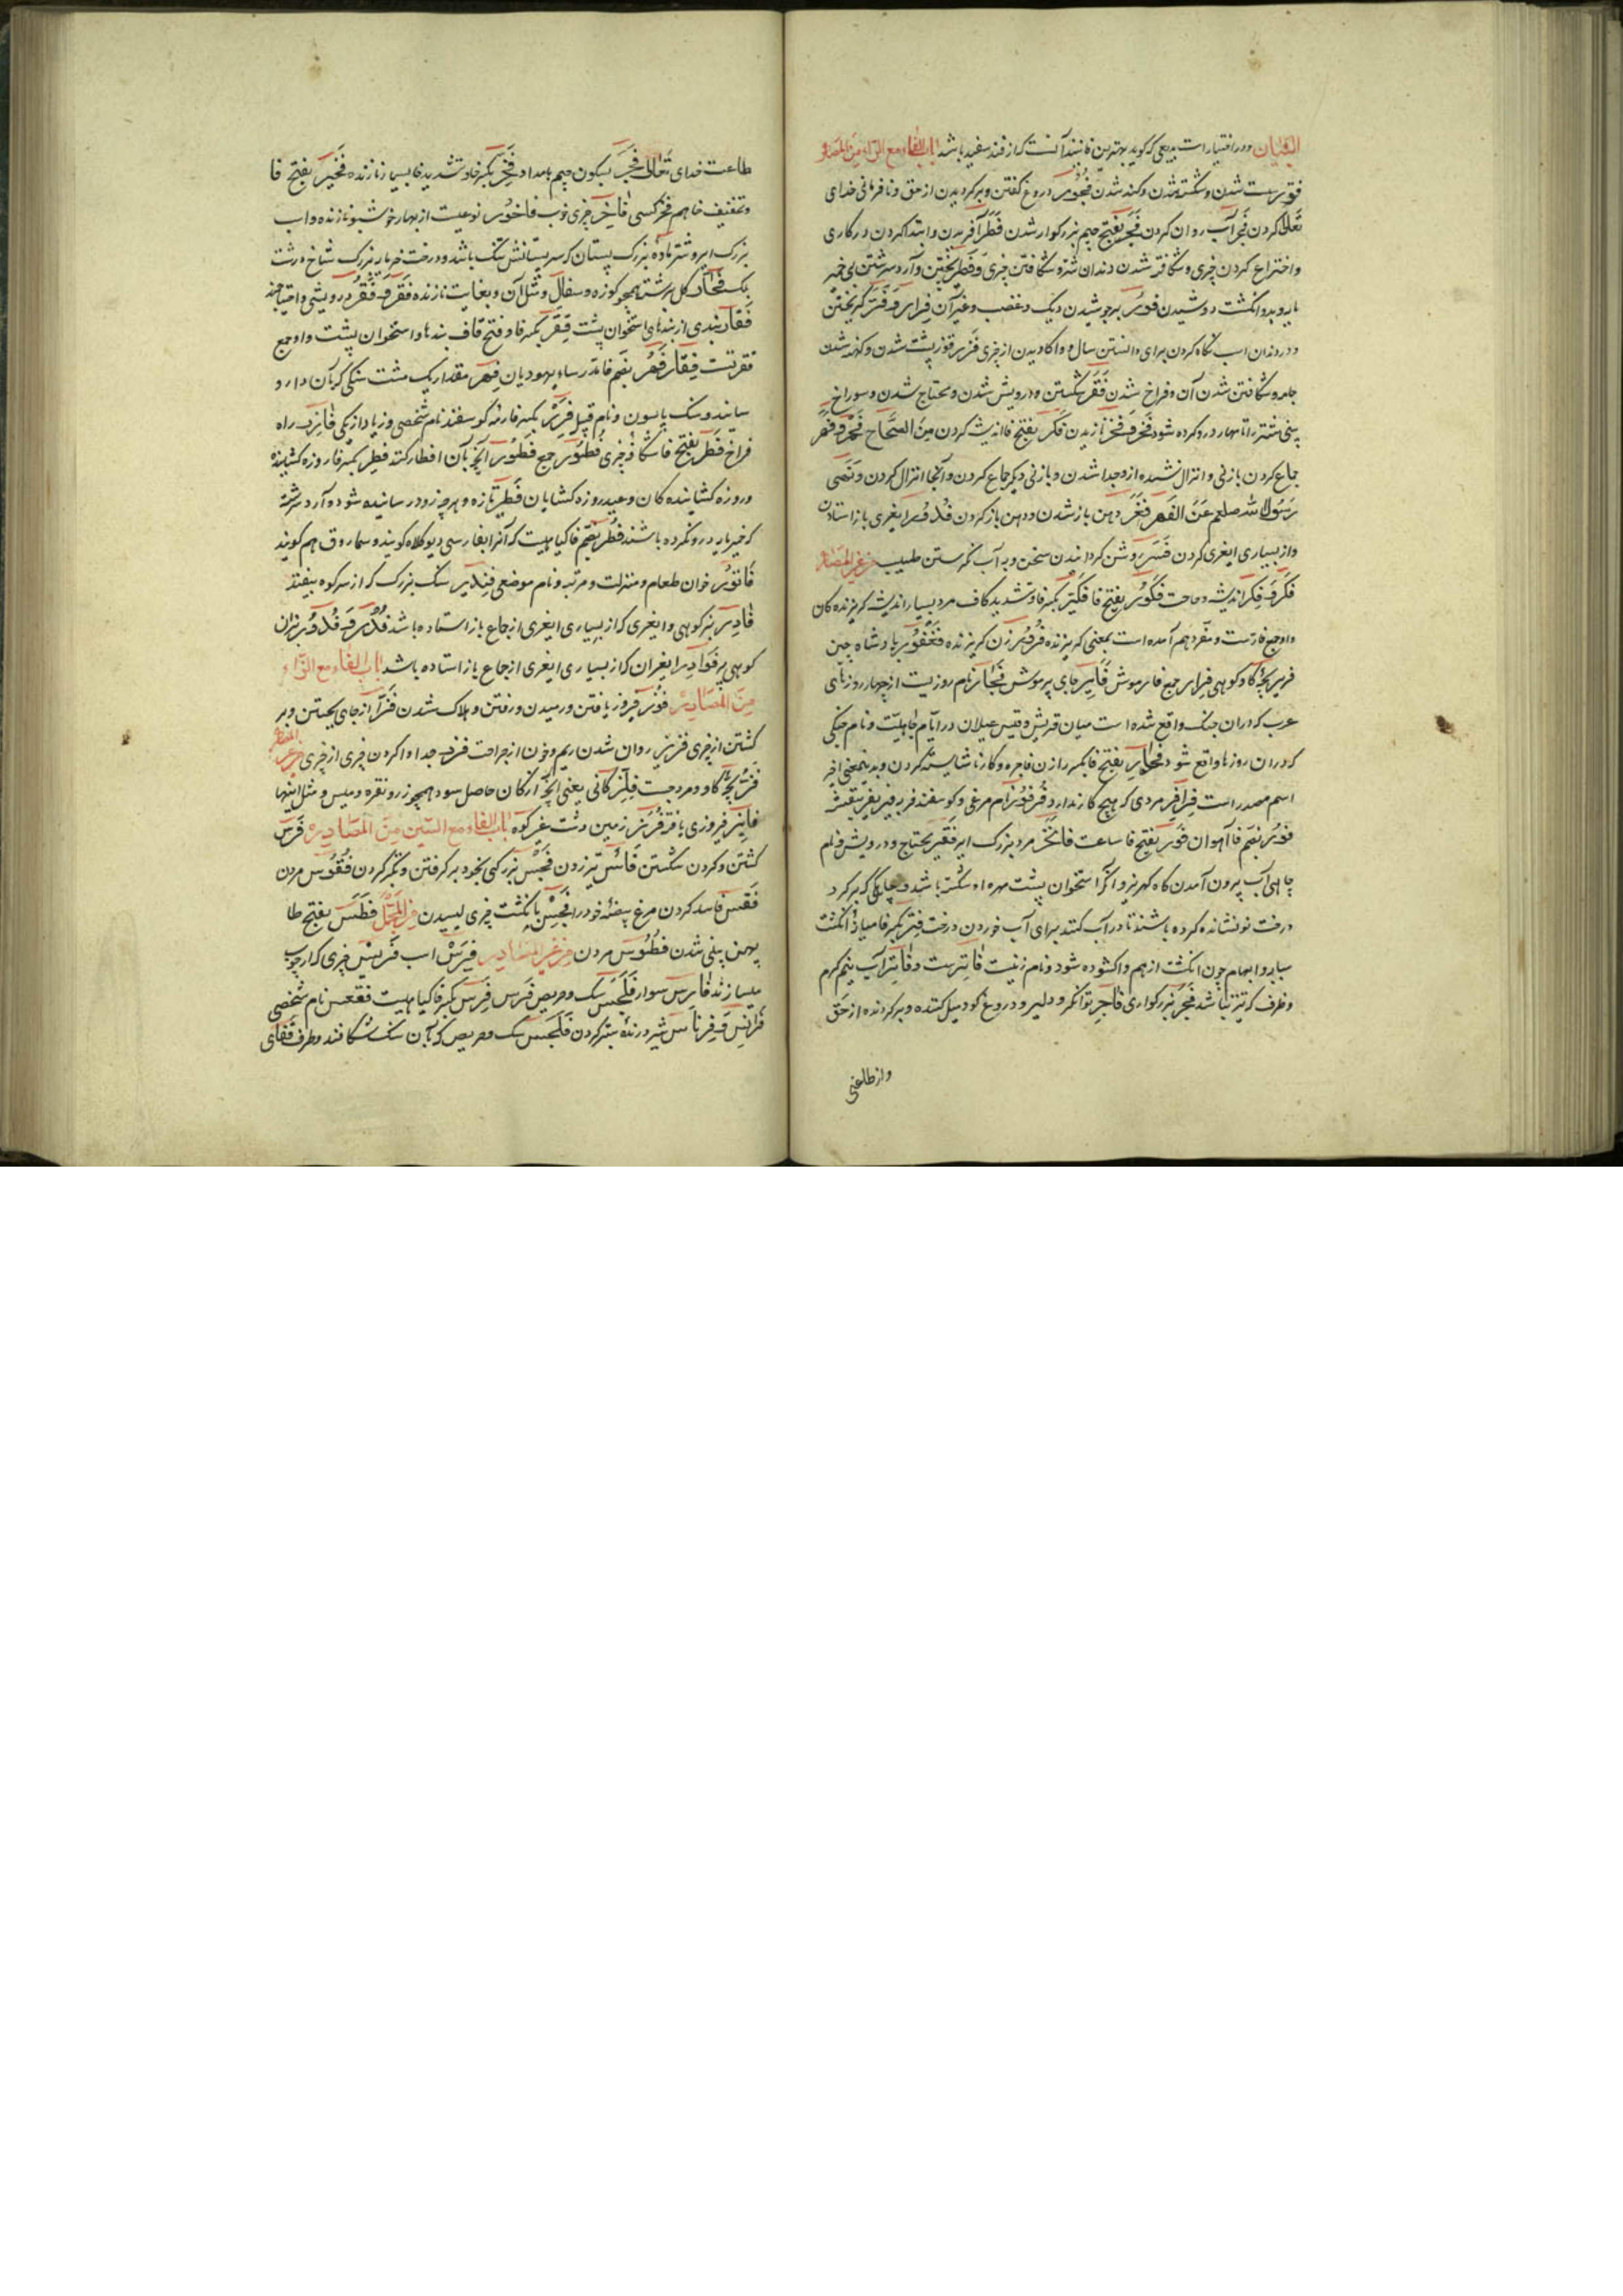 الشبان ودر اختیارات بدیعی که گوید بهترین فانیذ آنست که از قند سفید باشد باب الفاء مع الراء من المصادر
فتور سست شدن و شکسته شدن و کند شدن فجور دروغ گفتن و برگردیدن از حق و نافرمانی خدای
تعالی کردن فجر آب روان کردن فجر بفتح جیم بزرگوار شدن فطر آفریدن و ابتدا کردن در کاری
و اختراع کردن چیزی و شکافته شدن دندان شتر و شکافتن چیزی و فطیر پختن و آرد سرشتن بی خمیر
فور بر جوشیدن دیک و غضب و غیر آن فرار و مفر گریختن
و در دندان اسب نگاه کردن برای دانستن سال او و واکاویدن از چیزی فزر قوز پشت شدن و کهنه شدن
جامه و شکافتن شدن آن و فراخ شدن فقر شکستن و درویش شدن و محتاج شدن و سوراخ
بینی شتر را تا مهار در و کرده شود فخر و فخر نازیدن فکر بفتح فا اندیشه کردن من الصحاح فهر و فهر
جماع کردن با زنی و انزال نشده ازو جدا شدن و با زنی دیگر جماع کردن و آنجا انزال کردن و نهی
رسول الله صلعم عن الفهر فغر دهن باز شدن و دهن باز کردن فدور ایغری باز استادن
و از بسیاری ایغری کردن فسر روشن گردانیدن سخن و به آب نگرستن طبیب من غیر المصادر
فکر و فکر اندیشه و حاجت فکور بفتح فا فکیر بکسر فا و تشدید کاف مرد بسیار اندیشه گریزنده کان
و او جمع فارست و مفرد هم آمده است بمعنی گریزنده فرور زن گریزنده فغفور پادشاه چین
فریر بچه گاو کوهی فرار جمع فار موش فایر جای پر موش فجار نام روزیست از چهار روزهای
عرب که در آن جنگ واقع شده است میان قریش و قیس عیلان در ایام جاهلیت و نام جنگی
که در آن روزها واقع شود فجار بفتح فا بکسر را زن فاجره و کار ناشایسته کردن و بدینمعنی اخیر
اسم مصدر است فرافر مردی که هیچ کار ندارد فرفور نام مرغی و گوسفند فربه
فور بضم فا آهوان فور بفتح فا ساعت فاخر مرد بزرگ ابر فقیر محتاج و درویش و نام
چاهی آب بیرون آمدن گاه کهریز و آنکه استخوان پشت مهره او شکسته باشد و چاهی که گرد بر گرد
درخت نو نشانده کرده باشند تا در آب کنند برای آب خوردن درخت فتر بکسر فا میان دو انگشت
سبابه و ابهام چون انگشت از هم واکشوده شود و نام زنیست فاتر سست و فاتر آب نیم گرم
و ظرف که تیز نباشد فجر بزرگواری فاجر توانگر و دلیر و دروغ گو و میل کننده و برگردنده از حق
و از طاعتی
طاعت خدای تعالی فجر بسکون جیم بامداد فخیر بکسر فا و تشدید خا بسیار نازنده فخیر بفتح فا
و تخفیف خا هم فخر کسی فاخر چیزی خوب فاخور نوعیست از بهار خوشبو و نازنده و اسب
بزرگ ایر و شتر ماده بزرگ پستان که سر پستانش تنگ باشد و درخت خرمای بزرگ شاخ درشت
بیک فخار گل سرشته همچو کوزه و سفال و مثل آن و بغایت نازنده فقر و فقر درویشی و احتیاجمند
فقار بندی از بندهای استخوان پشت فقر بکسر فا و فتح قاف بندها و استخوان پشت و او جمع
فقرتست فقار فهر بضم فا مدرسه یهودیان فهر مقدار یک مشت سنگی که بآن دارو
سایند و سنگ پاسون و نام قبیله فزر بکسر فا رمه گوسفند نام شخصی و زیاد از یکی فازر راه
فراخ فطر بفتح فا شکاف چیزی فطور جمع فطور آنچه بآن افطار کنند فطر بکسر فا روزه کشاینده
و روزه کشاینده کان و عید روزه کشایان فطیر تازه و هر چیز زود رسانیده شود و آرد سرشته
که خمیر مایه در و نکرده باشند فطر بضم فا گیاهیست که آنرا بفارسی دیو کلاه گویند و سماروق هم گویند
فاثور خوان طعام و منزلت و مرتبه و نام موضعی فندیر سنگ بزرگ که از سر کوه بیفتد
فادر بز کوهی و ایغری که از بسیاری ایغری از جماع باز استاده باشد فدر و فدور بزان
کوهی پیر فوادر ایغران که از بسیاری ایغری از جماع باز استاده باشد باب الفاء مع الزاء
من المصادر فوز فیروز یافتن و رمیدن و رفتن و هلاک شدن فز از جای جستن و بر
گشتن از چیزی فزیز روان شدن ریم و خون از جراحت فرز جدا وا کردن چیزی از چیزی من غیر المصادر
فز بچه گاو و مرد چست فلز کانی یعنی آنچه از کان حاصل شود همچو زر و نقره و مس و مثل اینها
فایز فیروزی یافته فرز زمین دشت غیر کوه باب الفاء مع السین من المصادر فرس
کشتن و گردن شکستن فأس تبر زدن فجس بزرگی بخود بر گرفتن و تکبر کردن فقوس مردن
فقس فاسد کردن مرغ بیضه خود را فحس بانگشت چیزی لیسیدن من المجمل فطس بفتح طا
پهن بینی شدن فطوس مردن من غیر المصادر فرس اسب فریس چیزی که از چوب
میسازند فارس سوار فلحس سگ و حریص فرس فرس بکسر فا گیاهیست فقعس نام شخصی
فرانس و فرناس شیر درنده سبتر گردن فلحس سگ و حریص که بآن سنگ شکافند و طرف قفای